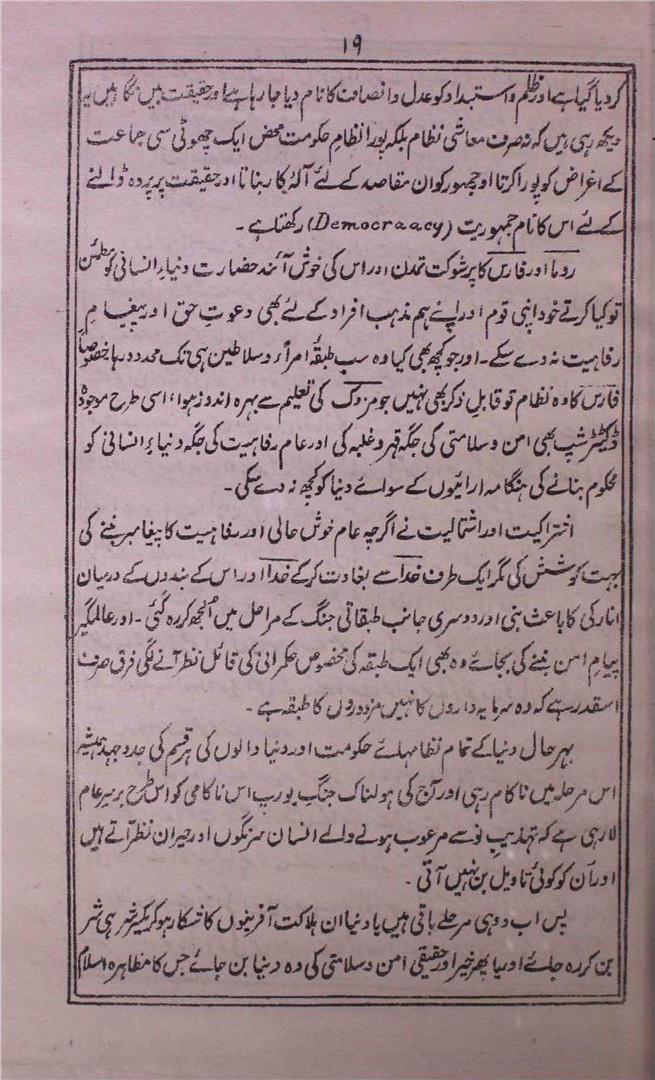 ۱۹
کر دیا گیا ہے اور ظلم و استبداد کو عدل و انصاف کا نام دیا جا رہا ہے اور حقیقت بیں نگاہیں یہ
دیکھ رہی ہیں کہ نہ صرف معاشی نظام بلکہ پورا نظامِ حکومت محض ایک چھوٹی سی جماعت
کے اغراض کو پورا کرتا اور جمہور کو ان مقاصد کے لئے آلۂ کار بناتا اور حقیقت پر پردہ ڈالنے
کے لئے اس کا نام جمہوریت (Democraacy) رکھتا ہے۔
روما اور فارس کا پر شوکت تمدن اور اس کی خوش آئند حضارت دنیاءِ انسانی کو مطمئن
تو کیا کرتے خود اپنی قوم اور اپنے ہم مذہب افراد کے لئے بھی دعوتِ حق اور پیغامِ
رفاہیت نہ دے سکے۔ اور جو کچھ بھی کیا وہ سب طبقۂ امراء و سلاطین ہی تک محدود رہا خصوصاً
فارس کا وہ نظام تو قابلِ ذکر بھی نہیں جو مزدک کی تعلیم سے بہرہ اندوز ہوا، اسی طرح موجودہ
ڈکٹیٹر شپ بھی امن و سلامتی کی جگہ قہر و غلبہ کی اور عام رفاہیت کی جگہ دنیاءِ انسانی کو
محکوم بنانے کی ہنگامہ آرائیوں کے سوائے دنیا کو کچھ نہ دے سکی۔
اشتراکیت اور اشتمالیت نے اگرچہ عام خوش حالی اور رفاہیت کا پیغامبر بننے کی
بہت کوشش کی مگر ایک طرف خدا سے بغاوت کر کے خدا اور اس کے بندوں کے درمیان
انارکی کا باعث بنی اور دوسری جانب طبقاتی جنگ کے مراحل میں اُلجھ کر رہ گئی۔ اور عالمگیر
پیامِ امن بننے کی بجائے وہ بھی ایک طبقہ کی مخصوص حکمرانی کی قائل نظر آنے لگی فرق صرف
اسقدر ہے کہ وہ سرمایہ داروں کا نہیں مزدوروں کا طبقہ ہے۔
بہر حال دنیا کے تمام نظامہائے حکومت اور دنیا والوں کی ہر قسم کی جدوجہد ہمیشہ
اس مرحلہ میں ناکام رہی اور آج کی ہولناک جنگِ یورپ اس ناکامی کو اس طرح برسرِ عام
لا رہی ہے کہ تہذیبِ نو سے مرعوب ہونے والے انسان سرنگوں اور حیران نظر آتے ہیں
اور اُن کو کوئی تاویل بن نہیں آتی۔
بس اب دو ہی مرحلے باقی ہیں یا دنیا ان ہلاکت آفرینوں کا شکار ہو کر یکسر شر ہی شر
بن کر رہ جائے اور یا پھر خیر اور حقیقی امن و سلامتی کی وہ دنیا بن جائے جس کا مظاہرہ اسلام